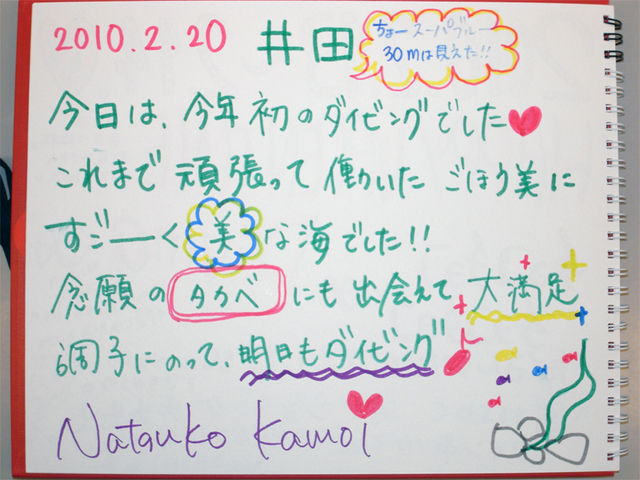 2010.2.20 井田
ちょースーパブルー
30mは見えた!!
今日は、今年初のダイビングでした♥
これまで 頑張って 働いた ごほう美に
すごーーく 美 な海でした!!
念願の タカベ にも 出会えて 大満足
調子にのって、明日もダイビング♪
Natsuko Kamoi